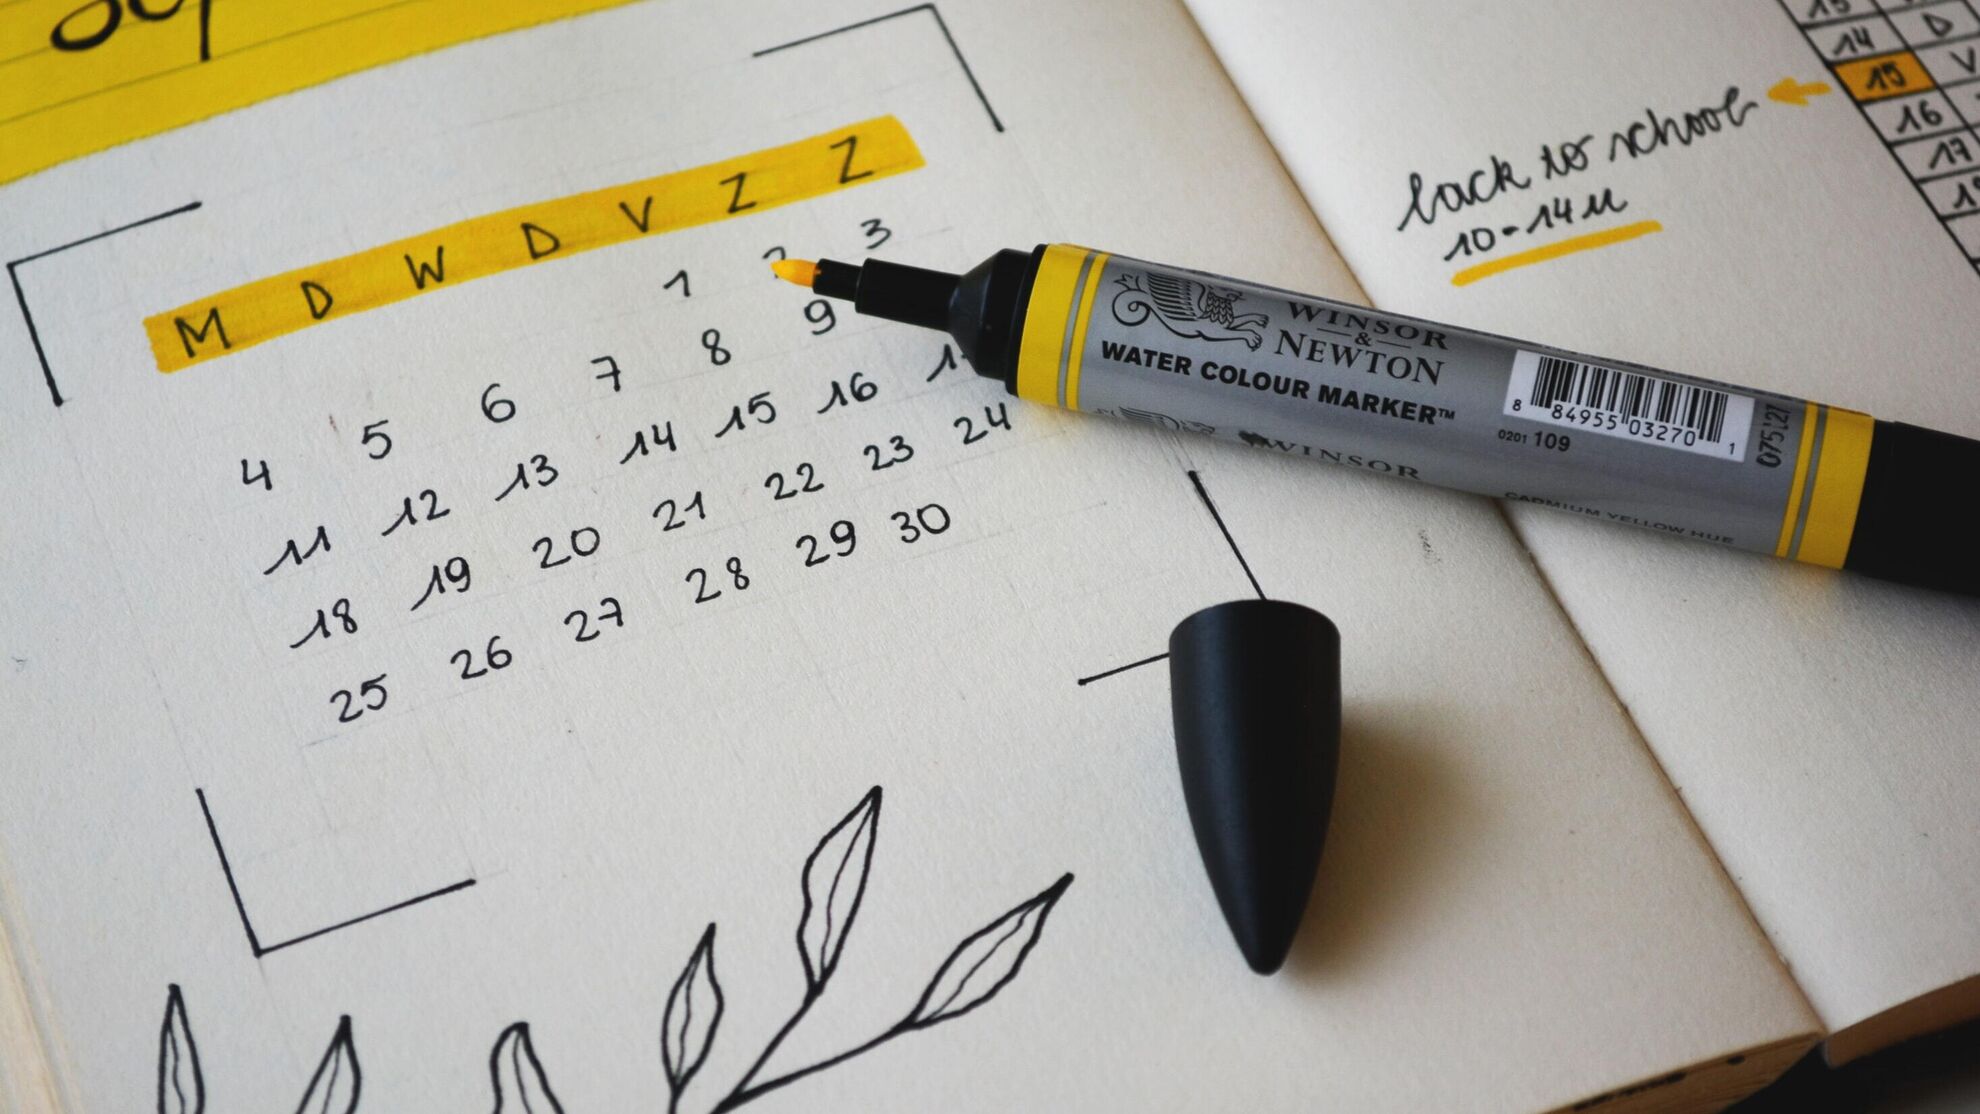 M D W D V Z Z
1 3
4 5 6 7 8 9
11 12 13 14 15 16
18 19 20 21 22 23 24
25 26 27 28 29 30
WINSOR
&
NEWTON
WATER COLOUR MARKER™
8 84955 03270 1
0201 109
075|21
WINSOR
CADMIUM YELLOW HUE
back to school
10-14u
14 D
15 V
16
17